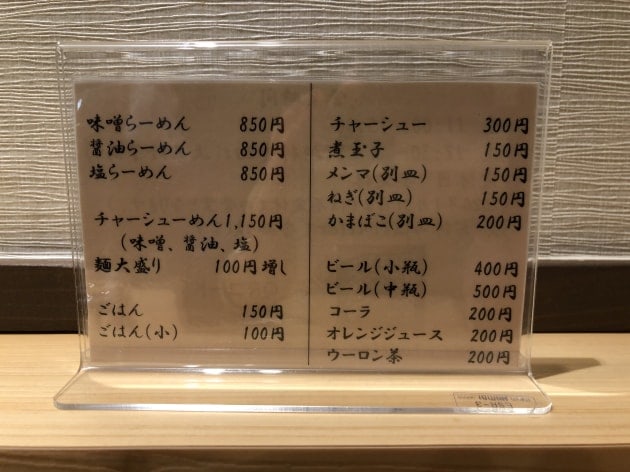 味噌らーめん 850円
醤油らーめん 850円
塩らーめん 850円
チャーシューめん1,150円
(味噌、醤油、塩)
麺大盛り 100円増し
ごはん 150円
ごはん(小) 100円
チャーシュー 300円
煮玉子 150円
メンマ(別皿) 150円
ねぎ(別皿) 150円
かまぼこ(別皿) 200円
ビール(小瓶) 400円
ビール(中瓶) 500円
コーラ 200円
オレンジジュース 200円
ウーロン茶 200円